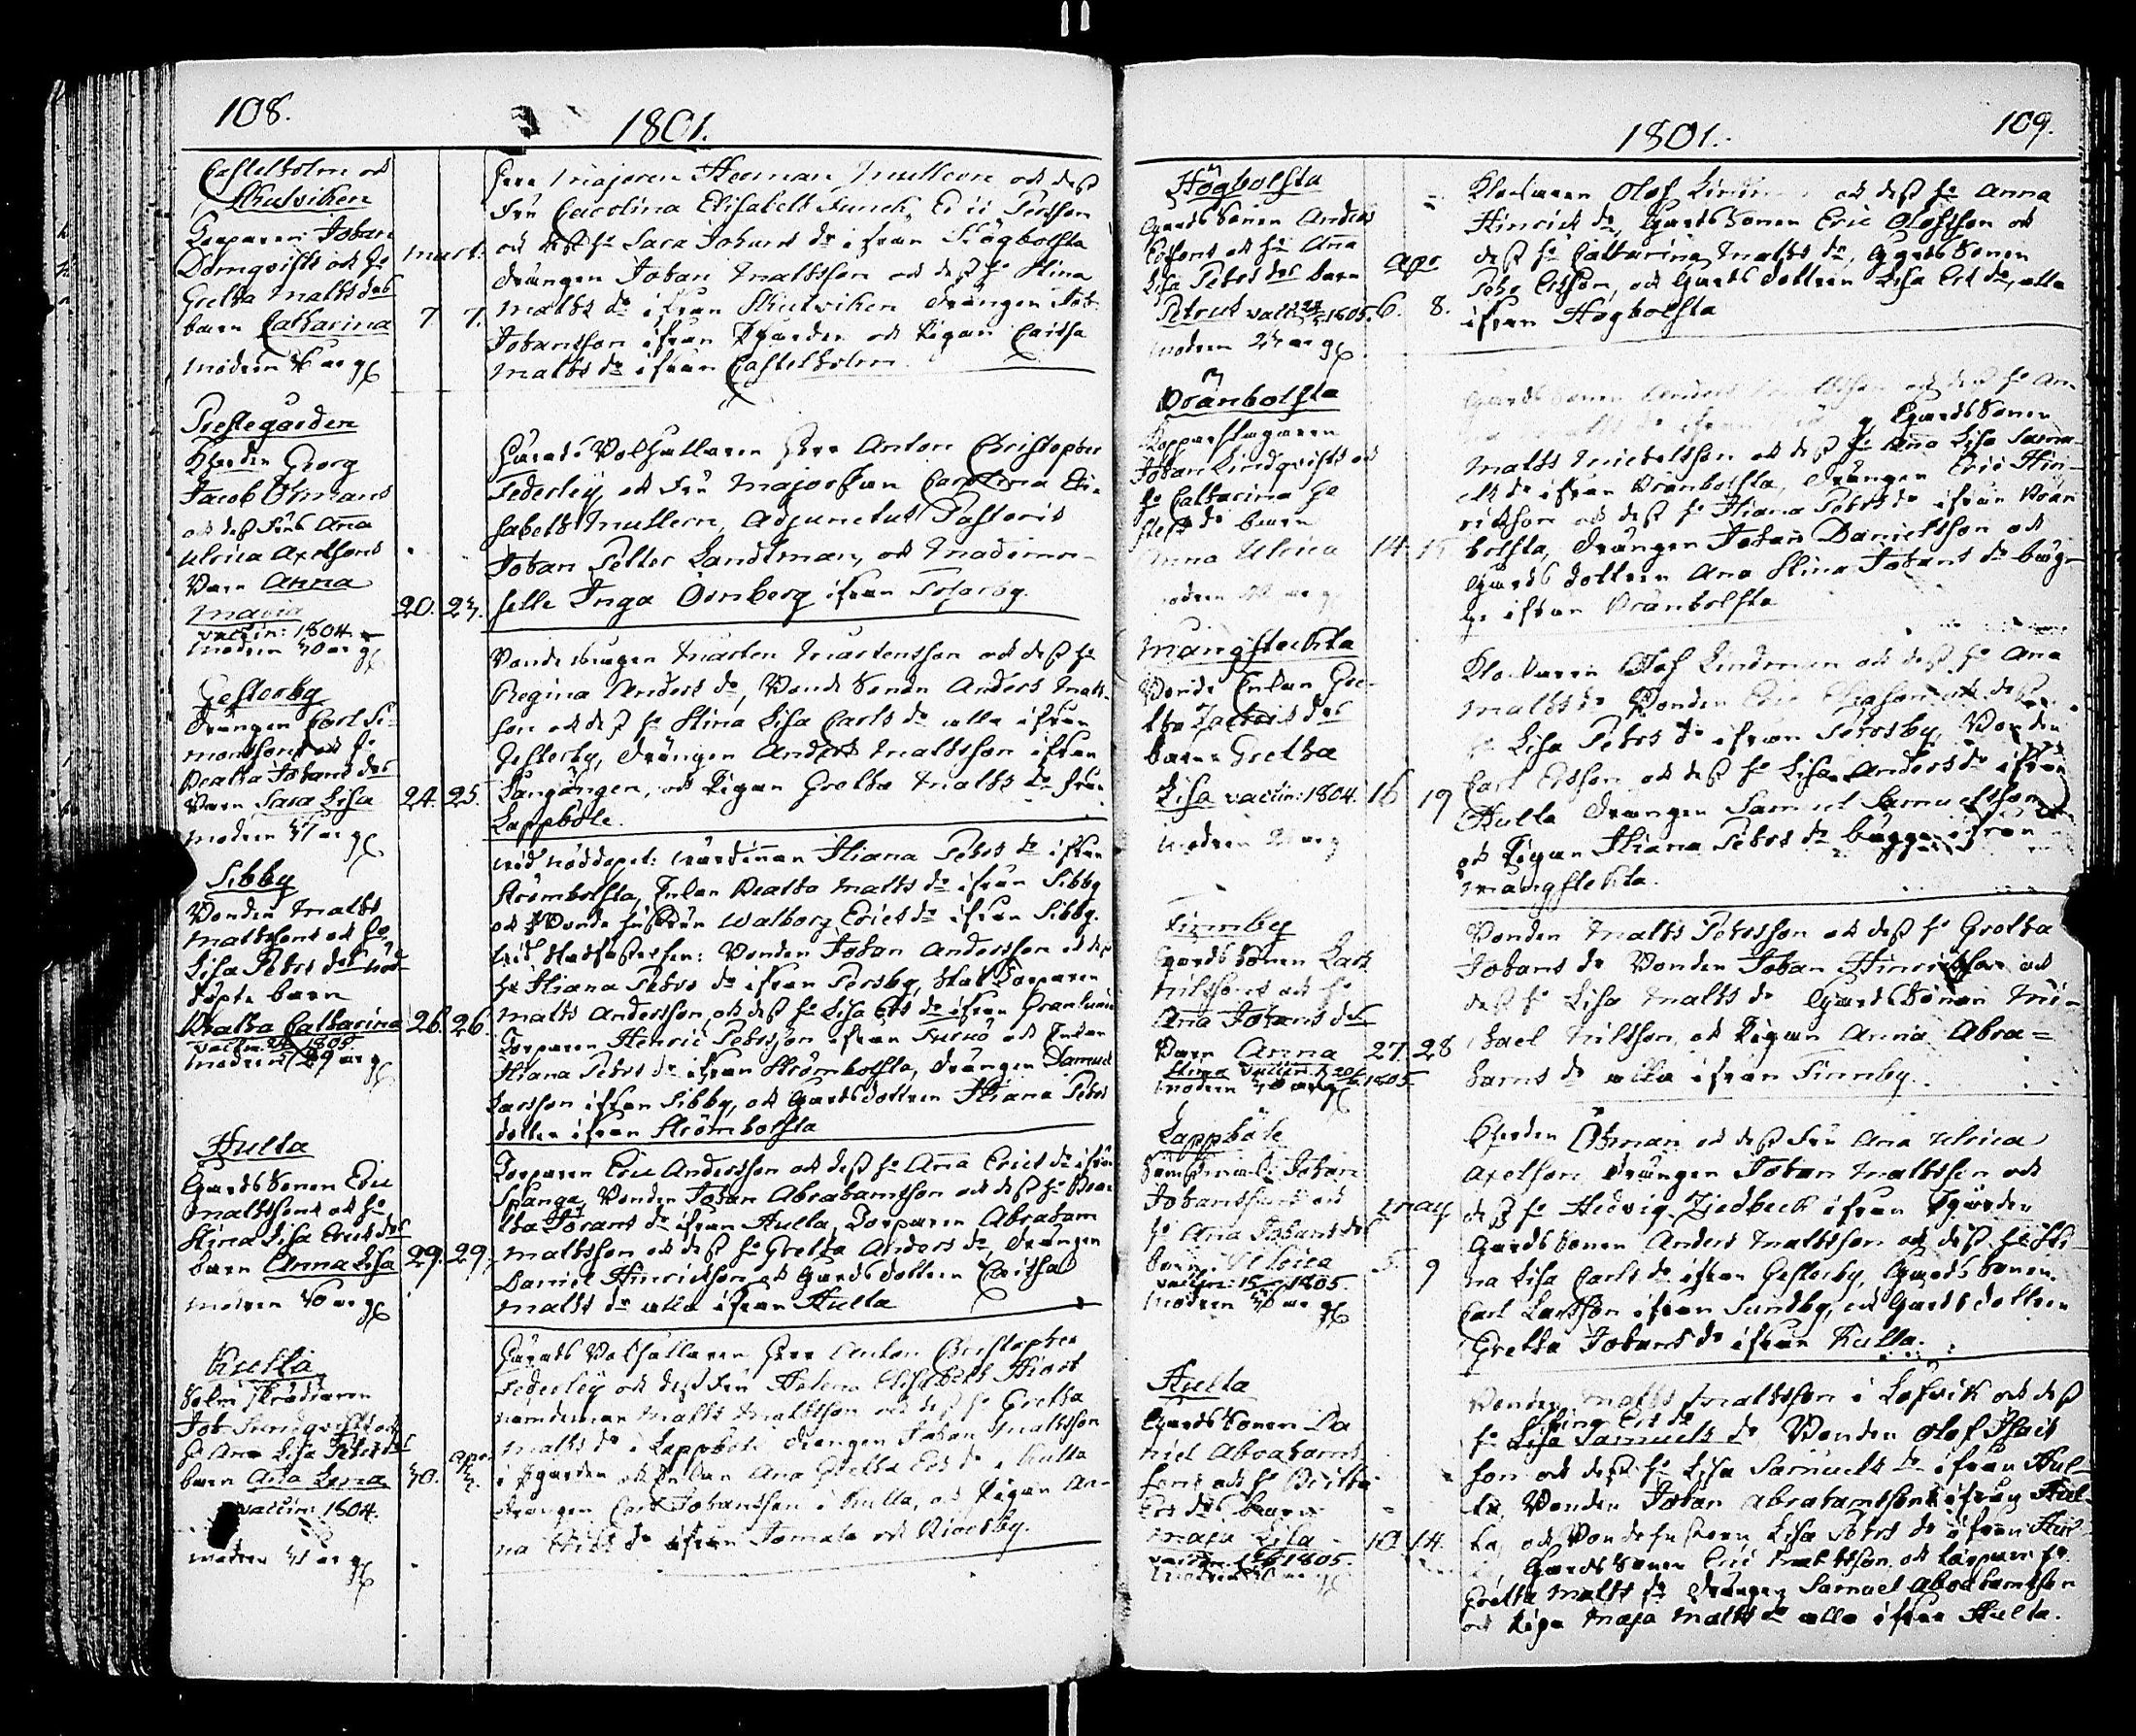 108.
1801.
Castelholm och
Skutviken
Torparen Johan
Domqvists och h:
Gretha Matts dot:
barn Catharina
modren år g
mart:
7 7.
Herr Majoren Herman Mullern och dess
Fru Carolina Elisabeth Funck, Eric Persson
och dess h: Sara Johans dr ifrån Högbolsta
Drängen Johan Mattsson och dess h: Stina
Matts dr ifrån Skutviken Drängen Joh:
Johansson ifrån och Pigan Caisa
Matts dr ifrån Castelholm
Prestegården
Georg
Jacob Öhmans
och dess Frus Ana
Ulrica Axelsons
Barn Anna
Maria
vaccin: 1804
modren 30 år g
20. 23.
Härads Befhallaren Herr Anton Christopher
Federley, och Fru Majorskan Carolina Eli-
sabeth Mullern, Adjunctus Pastoris
Johan Petter Landtman, och Mademoi-
selle Inga Örnberg ifrån
Gesterby
Drängen Carl Si-
monssons och h:
Beatha Johans dot:
Barn Sara Lisa
modren år g
24. 25.
Mårten Mårtensson och dess h:
Regina Anders dr, Bonde Sonen Anders Mats-
son och dess h: Stina Lisa Carls dr alla ifrån
Gesterby, Drängen Anders Mattsson ifrån
och Pigan Gretha Matts dr från
Lappböle.
Sibby
Bonden Matts
Mattssons och h:
Lisa Petrs dot: nöd-
döpte barn
Beatha Catharina
vaccin 1805
modren 29 år g
26. 26.
vid nöddopet: värdinnan Stiana Petrs dr ifrån
Strömbolsta, Enkan Beatha Matts dr ifrån Sibby
och Bonde hustrun Walborg Erics dr ifrån Sibby.
vid stadfästelsen: Bonden Johan Andersson och dess
h: Stiana Petrs dr ifrån Persby, Torparen
Matts Andersson och dess h: Lisa Ers dr ifrån
Torparen Henric Petrsson ifrån och Enkan
Stiana Petrs dr ifrån Strömbolsta, Drängen Samuel
Larsson ifrån Sibby, och Gårdsdottren Stiana Petrs
dotter ifrån Strömbolsta
Hulta
Gårds Sonen Eric
Mattssons och h:
Stina Lisa Erics dot:
barn Anna Lisa
modren 30 år g
29. 29.
Torparen Eric Andersson och dess h: Ana Erics dr ifrån
Spånga, Bonden Johan Abrahamsson och dess h: Bea-
tha Johans dr ifrån Hulta, Torparen Abraham
Mattsson och dess h: Gretha Anders dr, Drängen
Daniel Hinricsson och Gårdsdottren Caisa
Matts dr alla ifrån Hulta
Kulla
skräddaren
Joh: Sundqvists och
h: Ana Lisa Petrs dot:
barn Ana Lena
vaccin: 1804.
modren år g
30. apr. 2.
Härads Befhallaren Herr Anton Christopher
Federley och dess Fru Helena Elisabeth Hiort
Nämdeman Matts Mattsson och dess h: Gretha
Matts dr i Lappböle Drängen Johan Mattsson
i och Enkan Ana Gretha Ers dr i Kulla
Drängen Carl Johansson i Kulla, och Pigan An-
na Ers dr ifrån Jomala och
109.
1801.
Högbolsta
Gårds Sonen Anders
och h: Ana
Lisa Petrs dot: barn
Petrus vacc: 1805.
modren år g
apr
6. 8.
Klockaren Olof och dess h: Anna
Hinrics dr, Gårds Sonen Eric Olofsson och
dess h: Catharina Matts dr, Gårds Sonen
Petr Ersson, och Gårds dottren Lisa Ers dr, alla
ifrån Högbolsta
Bränbolsta
Kopparslagaren
Johan Lindqvists och
h: Catharina
barn
Anna Ulrica
modren år g
14. 15
Gårds Sonen Anders och dess h: An-
Gårds Sonen
Matts Michelsson och dess h: Anna Lisa Samu-
els dr ifrån Bränbolsta, Drängen Eric Hin-
ricsson och dess h: Stiana Petrs dr ifrån Brän
bolsta, Drängen Johan Danielsson och
Gårds dottren Ana Stina Johans dr bäg-
ge ifrån Bränbolsta
Mångstekta
Bonde Enkan Gre-
tha Zachris dot:
barn Gretha
Lisa vaccin: 1804.
modren år g
16 19
Klockaren Olof Lindman och dess h: Ana
Matts dr Bonden Eric och dess
h: Lisa Petrs dr ifrån Persby, Bonden
Carl Ersson och dess h: Lisa Anders dr ifrån
Hulta Drängen Samuel Samuelsson
och Pigan Stiana Petrs dr bägge ifrån
Mångstekta.
Finnby
Gårds Sonen Lars
Nilssons och h:
Ana Johans dot:
Barn Anna
Stina vaccin 1805.
modren 30 år g
27. 28
Bonden Matts Petrsson och dess h: Gretha
Johans dr Bonden Johan Hinricsson och
dess h: Lisa Matts dr Gårds Sonen Mi-
chael Nilsson, och Pigan Anna Abra=
hams dr alla ifrån Finnby.
Lappböle
Johan
Johanssons och
h: Ana Johans dot:
barn Ulrica
vaccin: 1805.
modren år g
may
5. 9
Öhman och dess Fru Ana Ulrica
Axelson, Drängen Johan Mattsson och
dess h: Hedvig ifrån
Gårds Sonen Anders Mattsson och dess h: Sti-
na Lisa Carls dr ifrån Gesterby, Gårds Sonen
Carl Larsson ifrån Sundby, och Gårds dottren
Gretha Johans dr ifrån Kulla.
Hulta
Gårds Sonen Da
niel Abrahams
sons och h: Britha
Ers dot: barn
Maja Lisa
vaccin 1805.
modren år g
10. 14.
Bonden Matts Mattsson i Löfvik och dess
Stina Ers dr
h: Lisa Samuels dr, Bonden Olof Isacs
son och dess h: Lisa Samuels dr ifrån Hul-
ta, Bonden Johan Abrahamsson ifrån Hul-
ta, och Bonde hustrun Lisa Petrs dr ifrån Hul-
Gårds Sonen Eric Mattsson, och Torpare h:
Gretha Matts dr Drängen Samuel Abrahamsson
och Piga Maja Matts dr alla ifrån Hulta.